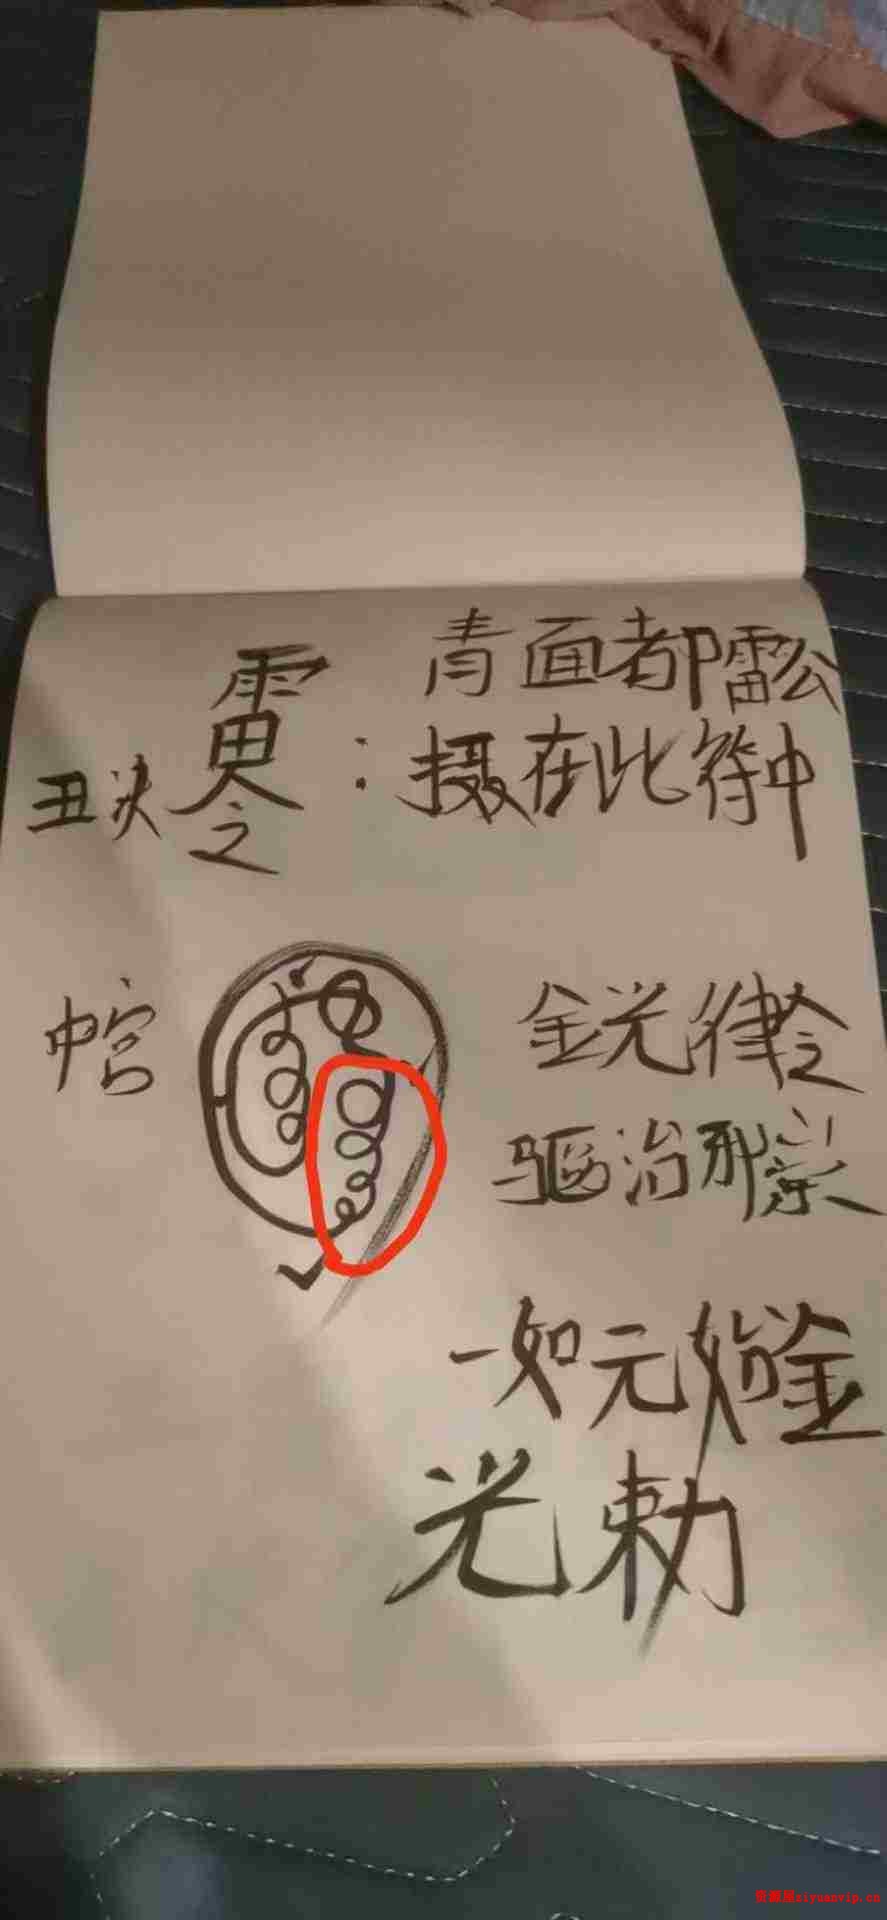 青面都雷公
丑决 雷令：摄在此符中
中宫
金光律令
驱治邪祟
一如元始金
光敕
资源屋ziyuanvip.cn